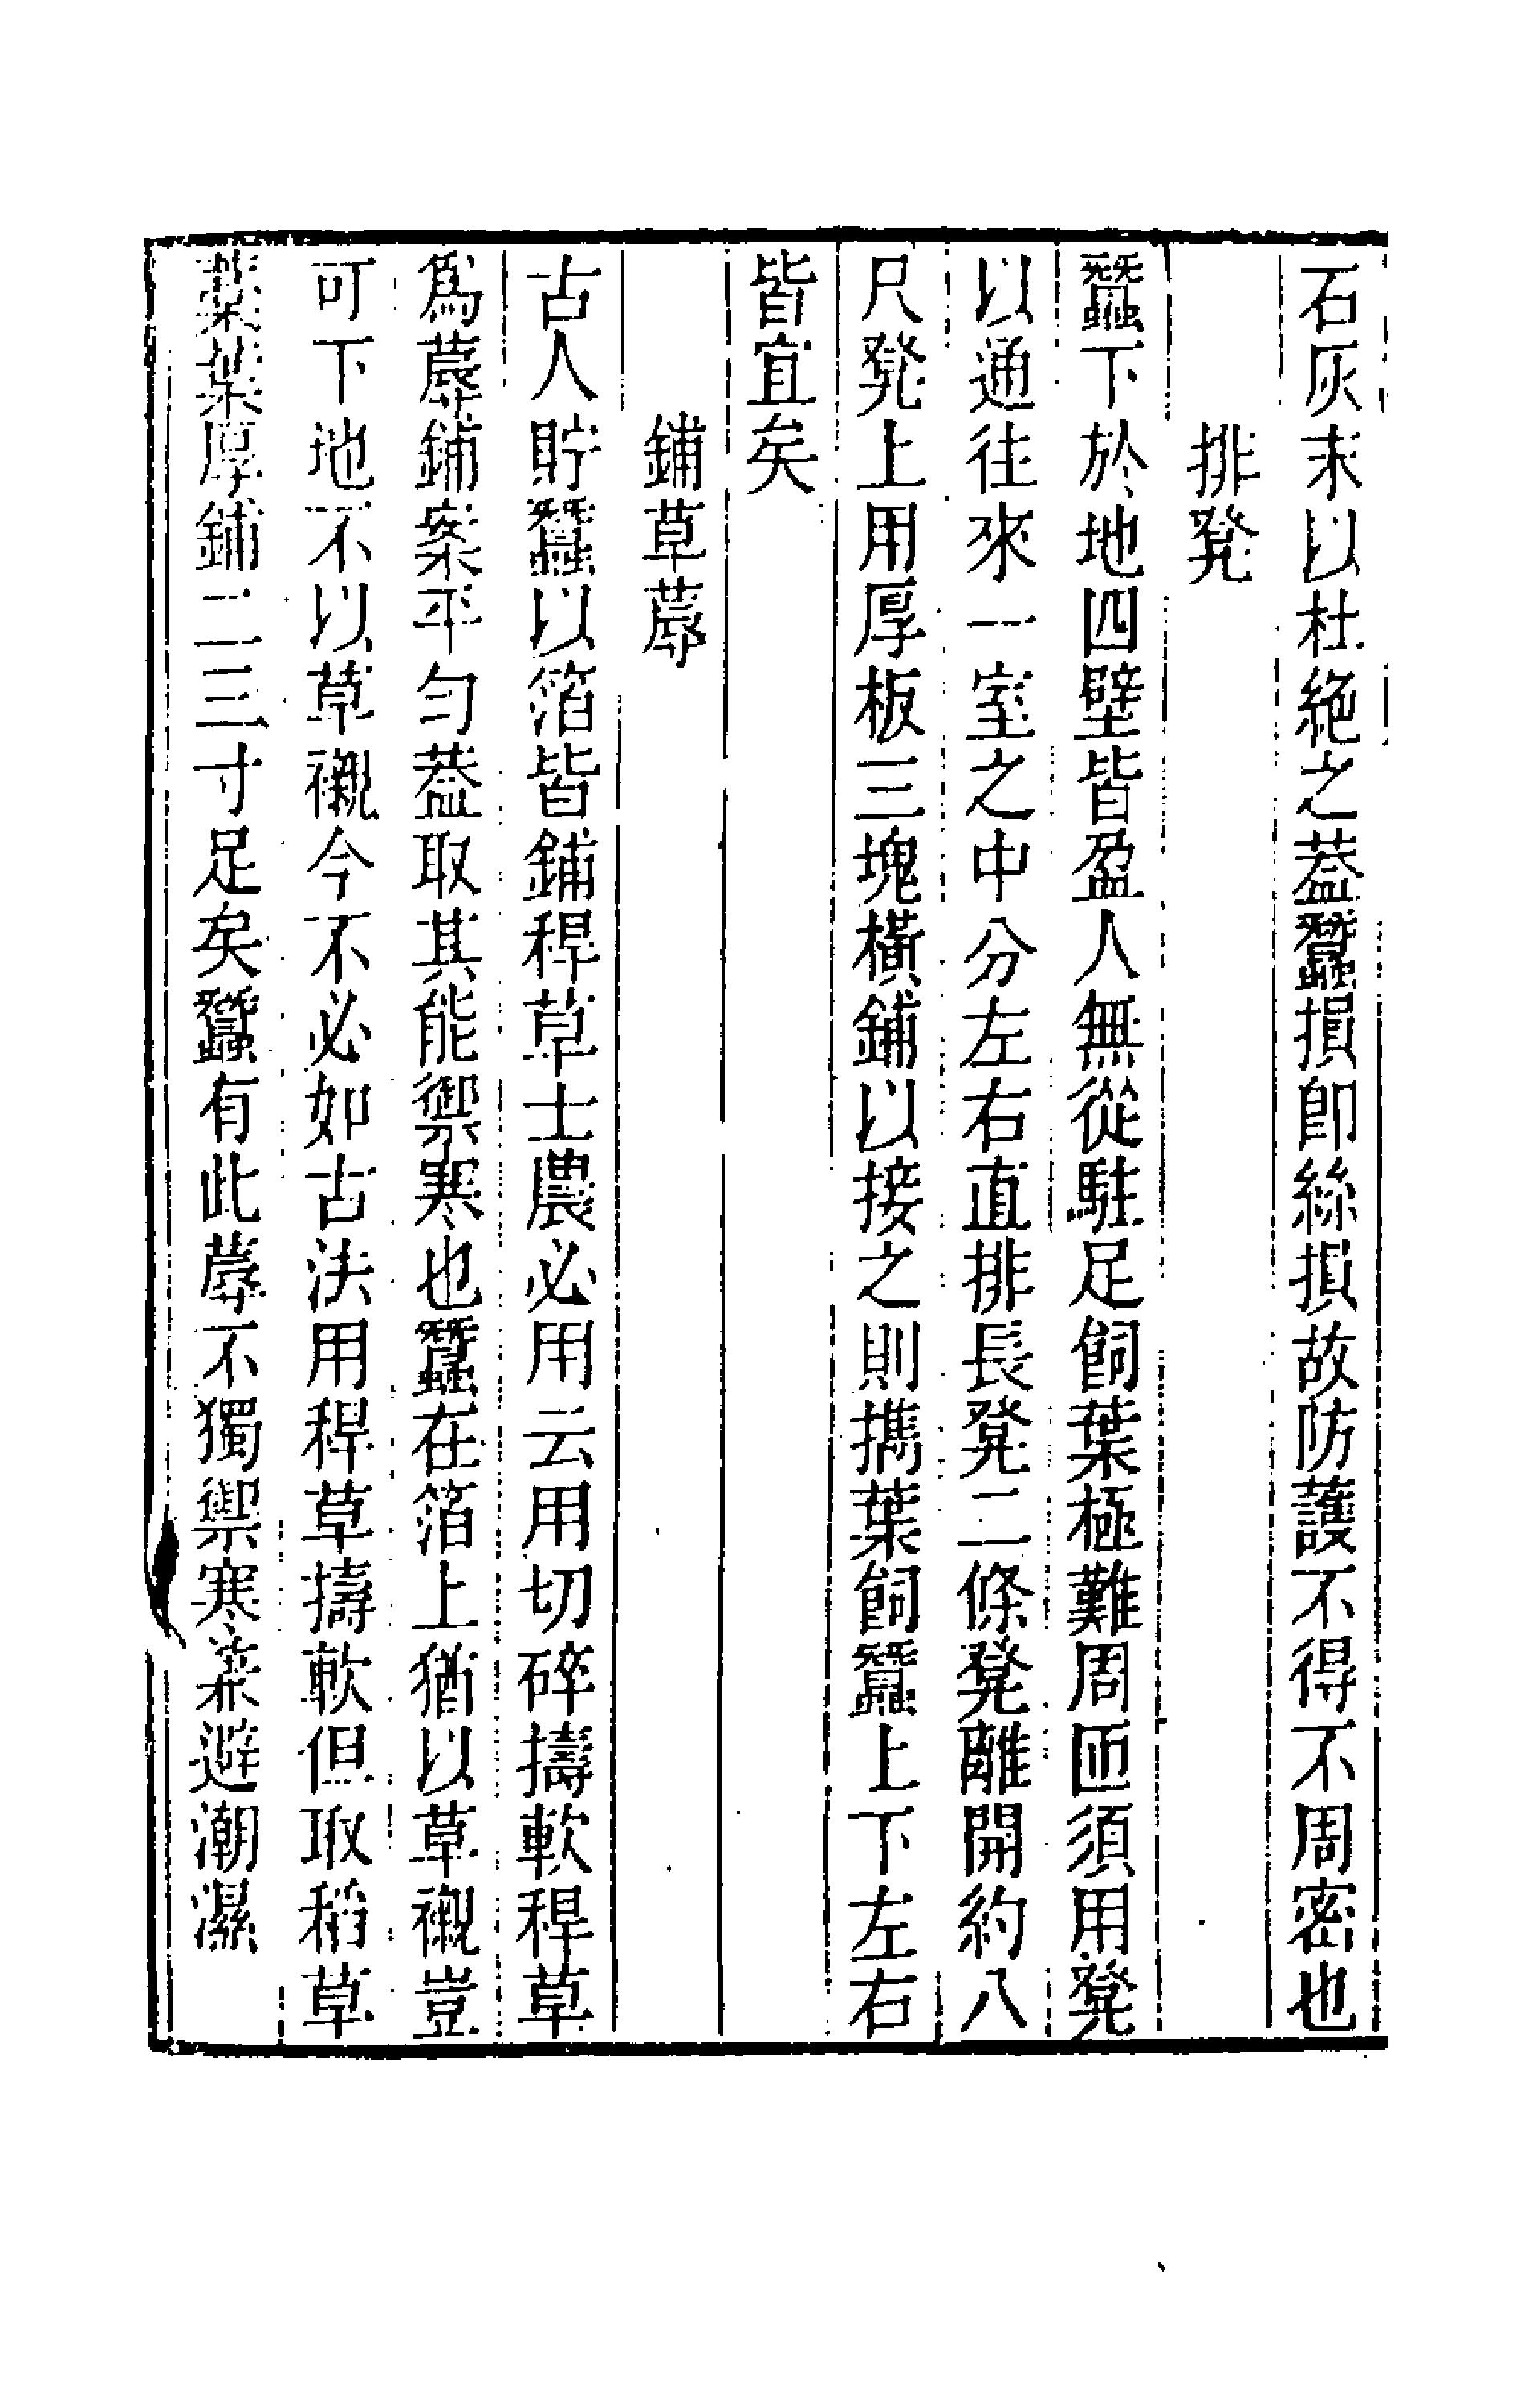 石灰末以杜絕之葢蠶損即絲損故防護不得不周密也
排凳
蠶下於地四壁皆盈人無從駐足飼葉極難周匝須用凳
以通往來一室之中分左右直排長凳二條凳離開約八
尺凳上用厚板三塊橫鋪以接之則擕葉飼蠶上下左右
皆宜矣
鋪草蓐
古人貯蠶以箔皆鋪稈草士農必用云用切碎擣軟稈草
爲蓐鋪案平勻葢取其能禦寒也蠶在箔上猶以草襯豈
可下地不以草襯今不必如古法用稈草擣軟但取稻草
葉厚鋪二三寸足矣蠶有此蓐不獨禦寒兼避潮濕